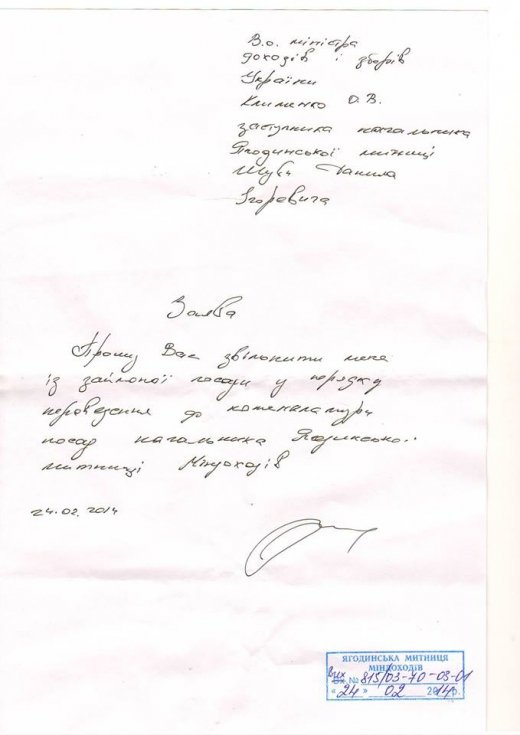 В.о. міністра
доходів і зборів
України
Клименко О.В.
заступника начальника
Ягодинської митниці
Шуби Данила
Ігоревича
Заява
Прошу Вас звільнити мене
із займаної посади у порядку
переведення до номенклатури
посад начальника Ягодинської
митниці Міндоходів
24.02.2014
ЯГОДИНСЬКА МИТНИЦЯ
МІНДОХОДІВ
Вих № 815/03-70-03-01
«24» 02 2014р.